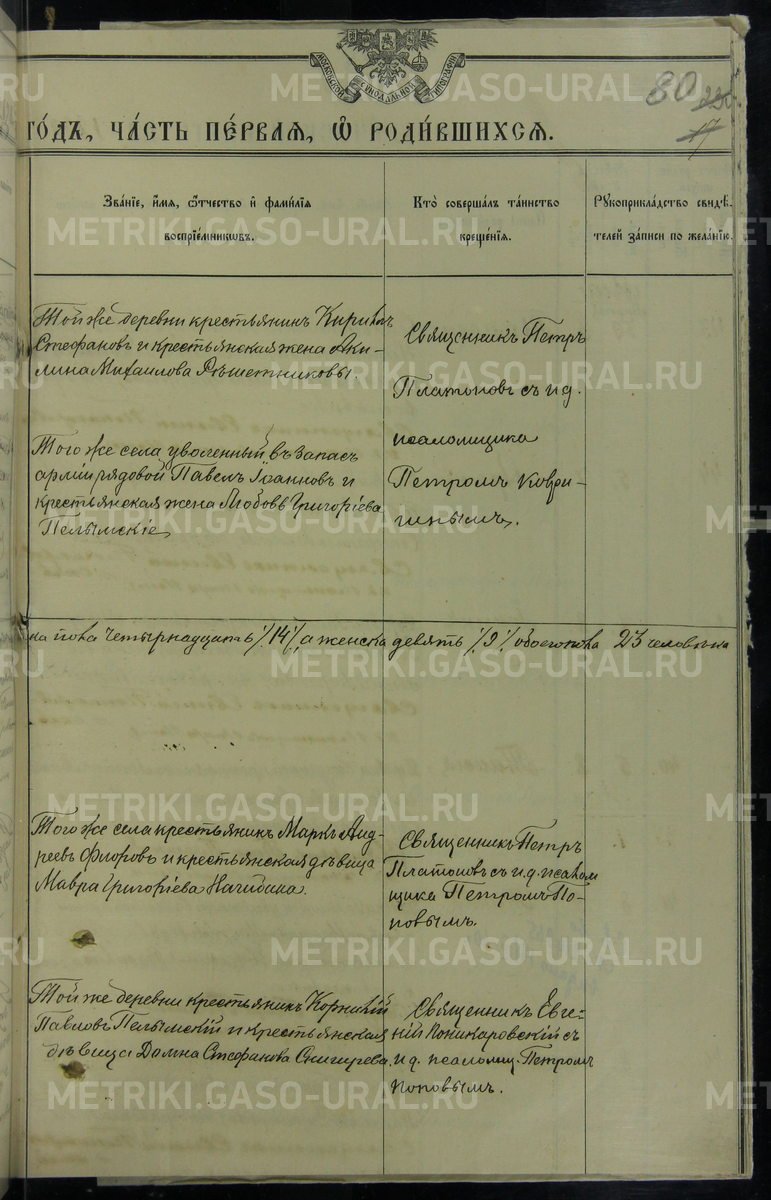 МОСКОВСКОЙ СѴНОДАЛЬНОЙ ТИПОГРАФІИ
80
17
го́дъ, ча́сть пе́рваѧ, ѡ҆ роди́вшихсѧ.
Зва́нїе, и҆́мѧ, ѻ҆́тчество и҆ фами́лїѧ
воспрїе́мникѡвъ.
Кто̀ соверша́лъ та́инство
креще́нїѧ.
Рꙋкоприкла́дство свидѣ́-
телей за́писи по жела́нїю.
Той же деревни крестьянинъ Кириллъ
Стефановъ и крестьянская жена Аки-
лина Михаилова Рѣшетниковы.
Священникъ Петръ
Платоновъ съ и.д.
псаломщика
Петромъ Коври-
гинымъ.
Того же села уволенный въ запасъ
арміи рядовой Павелъ Іоанновъ и
крестьянская жена Любовь Григоріева
Пелымскіе
на пола четырнадцать /14/, а женска девять /9/ обоего пола 23 человѣка
Того же села крестьянинъ Маркъ Анд-
реевъ Флоровъ и крестьянская дѣвица
Мавра Григоріева Нагибина.
Священникъ Петръ
Платоновъ съ и.д. псалом
щика Петромъ По-
повымъ.
Той же деревни крестьянинъ Корнилій
Павловъ Пелымскій и крестьянская
дѣвица Домна Стефанова Снигирева.
Священникъ Евге-
ній Пономаровскій съ
и.д. псаломщ. Петромъ
Поповымъ.
METRIKI.GASO-URAL.RU